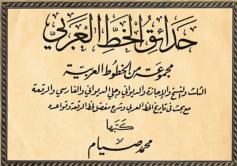 حدائق الخط العربي
مجموعة من الخطوط العربية
الثلث والنسخ والإجازة والديواني وجلي الديواني والفارسي والرقعة
مع بحث في تاريخ الخط العربي وشرح مفصل لخط الرقعة وقواعده
كتبها
محمد صيام